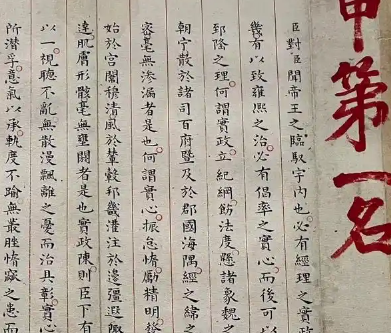 第一名
臣對臣聞帝王之臨馭宇內也必有經理之實政
幾有以致雍熙之治必有倡率之實心而後可以
郅隆之理何謂實政立紀綱飭法度懸諸象魏之
朝宁散於諸司百府暨及於郡國海隅經之緯之
密毫無滲漏者是也何謂實心振怠惰勵精明發
始於宮闈穆清風於輦轂邦畿灌注於邊疆遐陬
達肌膚形骸毫無壅閼者是也實政陳則臣下有
以一視聽不亂無散漫飄離之憂而治具彰實心
所潛孚意氣以承軌度不踰無叢脞惰窳之患而